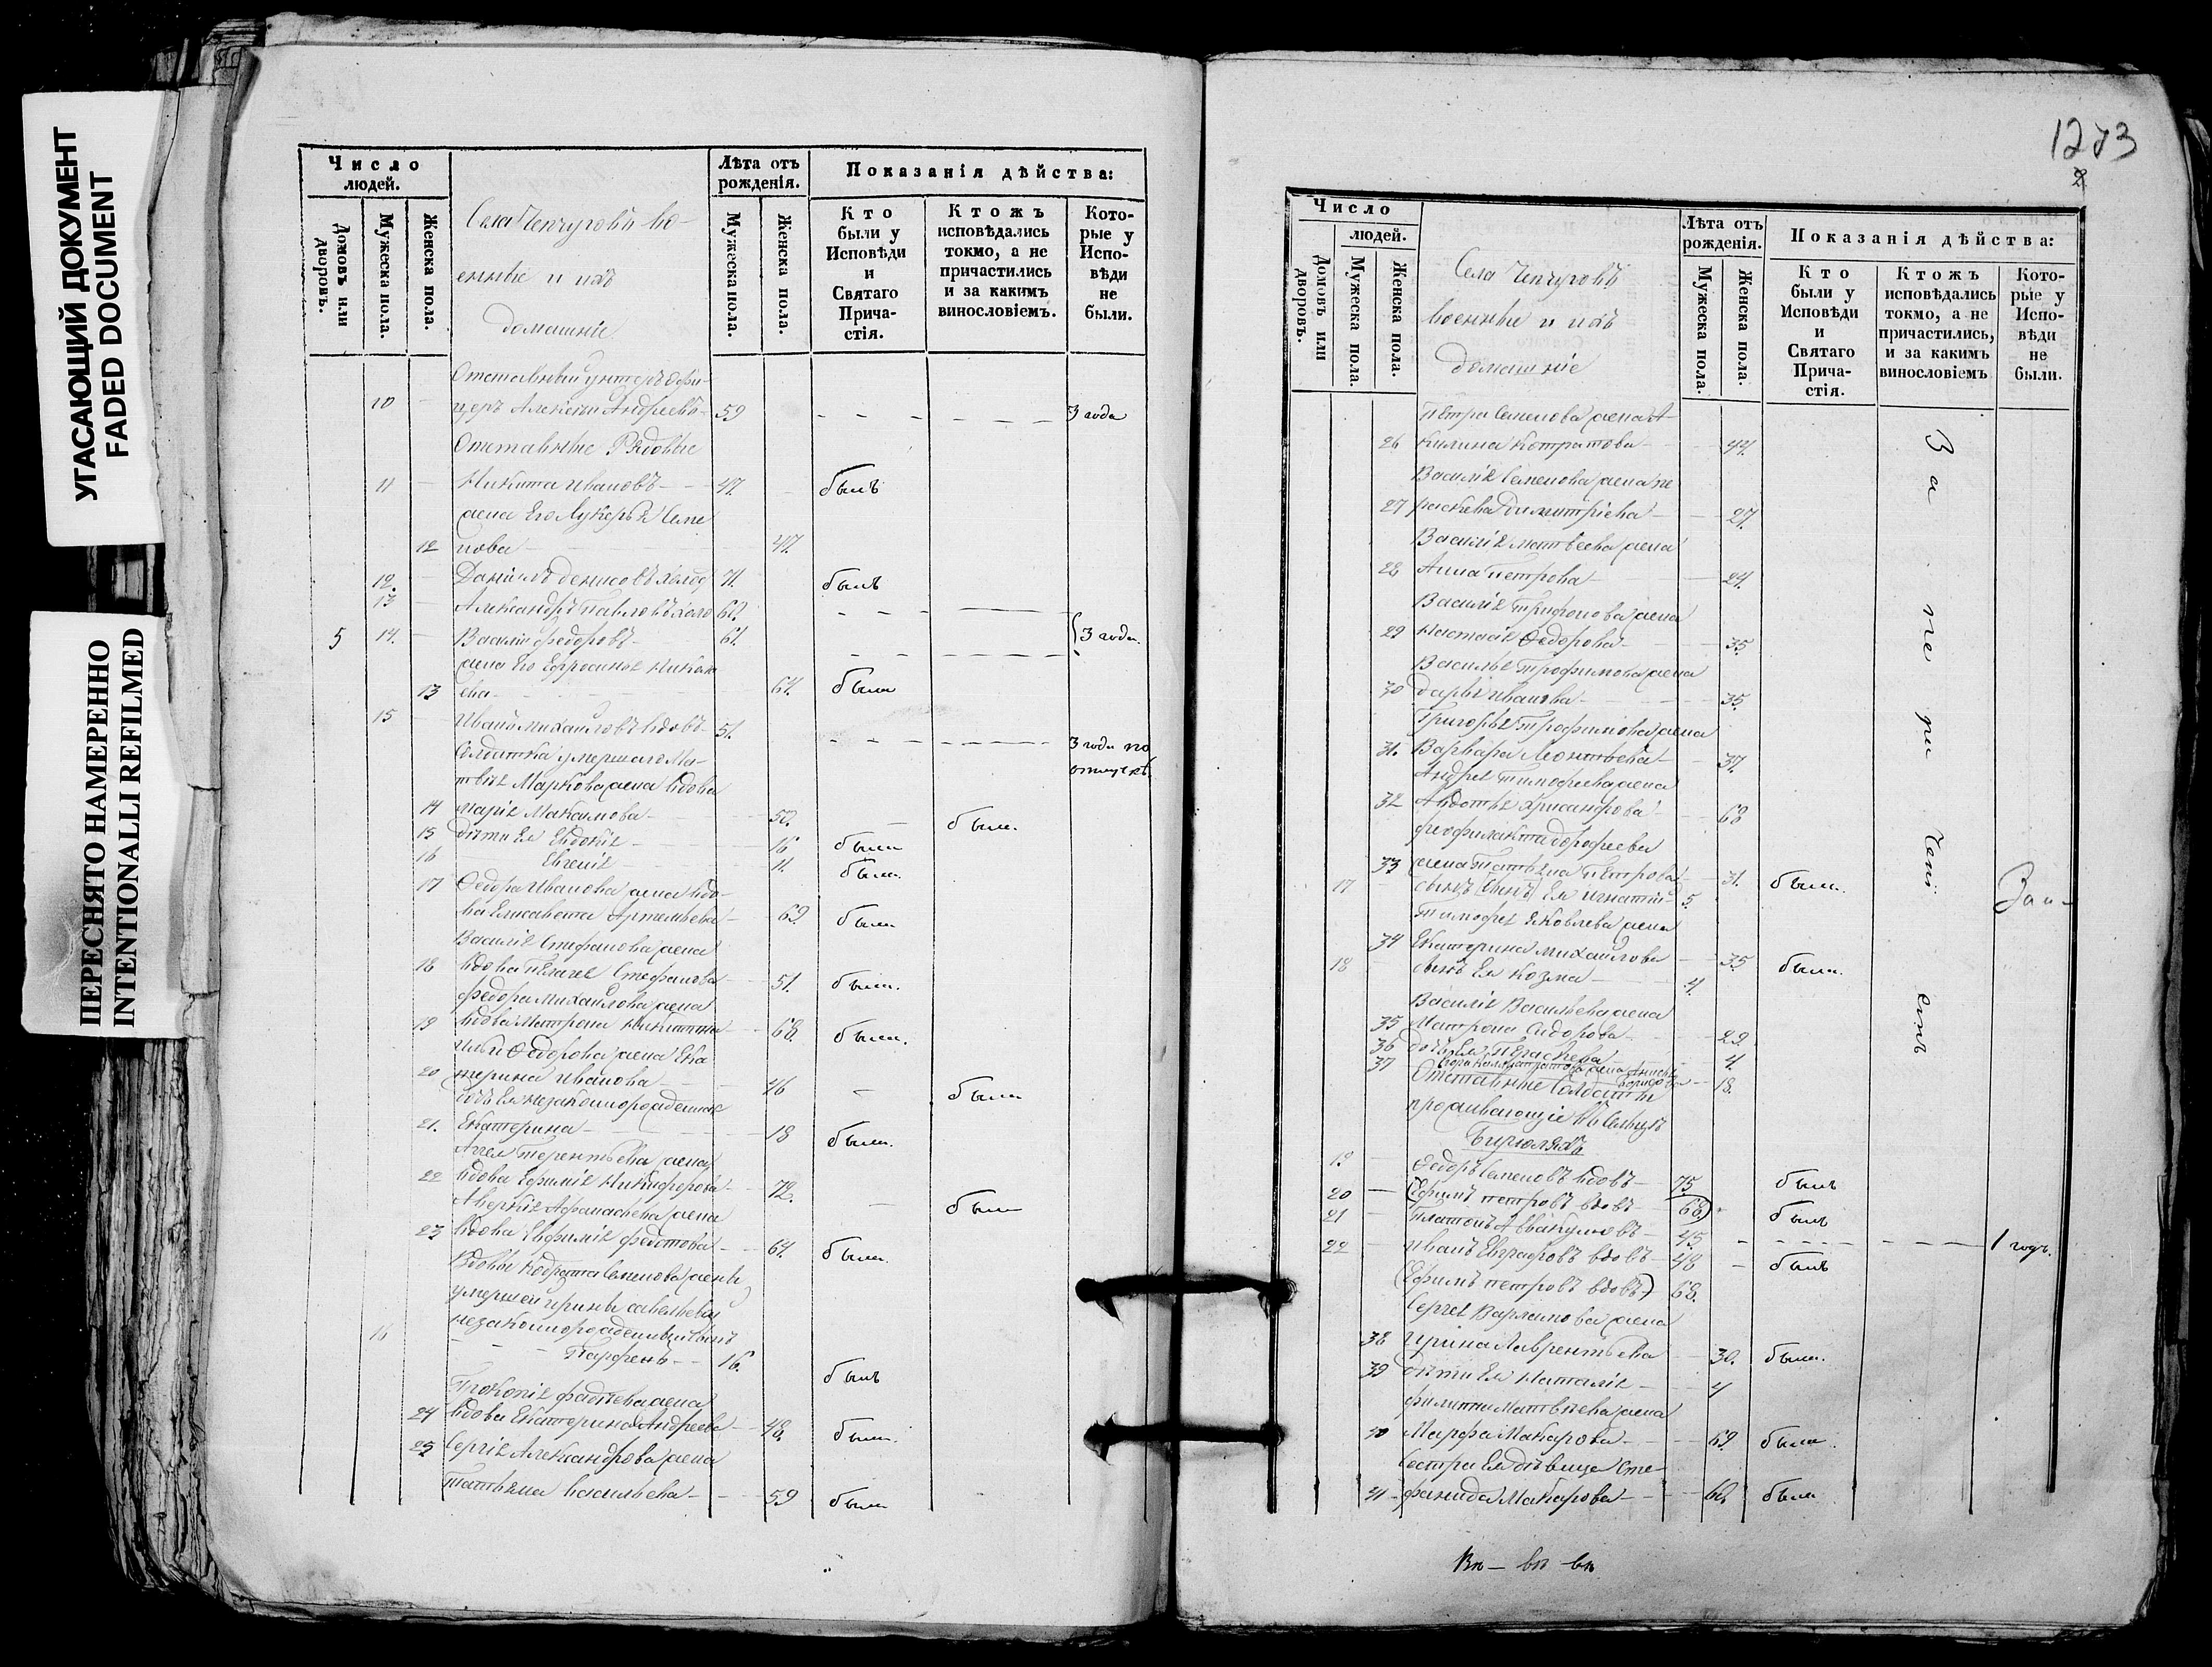 УГАСАЮЩИЙ ДОКУМЕНТ
FADED DOCUMENT
ПЕРЕСНЯТО НАМЕРЕННО
INTENTIONALLI REFILMED
Число людей.
Домовъ или дворовъ.
Мужеска пола.
Женска пола.
Села Чепчуговъ во-
енные и ихъ
домашніе
Лѣта отъ рожденія.
Мужеска пола.
Женска пола.
Показанія дѣйства:
Кто были у Исповѣди и Святаго Прича-стія.
Ктожъ исповѣдались токмо, а не причастились и за какимъ винословіемъ.
Кото-рые у Испо-вѣди не были.
Отставный унтеръ офи-
10 церъ Алексѣй Андреевъ 59 3 года
Отставные Рядовые
11 Никита Ивановъ 47. былъ
жена Его Лукерья Семе
12 нова 47.
12. Даніилъ Денисовъ холос 71. былъ
13 Александръ Павловъ холо 62.
5 14. Василій Федоровъ 61. 3 года.
жена Его Ефросинья Никола
13 ева 64. была
15 Иванъ Михайловъ вдовъ 51. 3 года по
отлучкѣ
Солдатка умершаго Ма-
твѣя Маркова жена вдова
14 Марія Максимова 50. была.
15 дѣти Ея Евдокія 16 была
16 Евгенія 11. была.
17 Федора Иванова жена вдо-
ва Елисавета Артемьева 69. была
Василія Стефанова жена
18 вдова Пелагея Стефанова 51. была.
Федора Михайлова жена
19 вдова Матрона Никитина 68. была.
Ильи Федорова жена Ека
20 терина Иванова 46 была
дочь Ея незаконнорожденная
21. Екатерина 18 была.
Аггея Терентьева жена
22 вдова Ефимія Никифорова 72. была
Аверкія Афанасьева жена
23 вдова Евфимія Федотова 64. была.
Вдовы Кодрата Семенова жены
умершей Ирины Савельевой
незаконнорожденный сынъ
16 Парфенъ 16. былъ
Прокопія Фадѣева жена
24 вдова Екатерина Андреева 48. была.
25 Сергія Александрова жена
Татьяна Васильева 59 была
1273
Число людей.
Домовъ или дворовъ.
Мужеска пола.
Женска пола.
Села Чепчуговъ
военные и ихъ
домашніе
Лѣта отъ рожденія.
Мужеска пола.
Женска пола.
Показанія дѣйства:
Кто были у Исповѣди и Святаго Прича-стія.
Ктожъ исповѣдались токмо, а не причастились, и за какимъ винословіемъ
Кото-рые у Испо-вѣди не были.
Петра Семенова жена А-
26 килина Котратова 44.
Василія Семенова жена Пе
27 раскева Димитріева 27.
Василія Матвѣева жена
28 Анна Петрова 24.
Василія Трифонова жена
29 Настасія Федорова 35.
Василья Трофимова жена
30 Дарья Иванова 35.
Григорья Трофимова жена
31. Варвара Леонтьева 37.
Андрея Тимофеева жена
32 Авдотья Хрисанфова 68
Феофилакта Дорофеева
33 жена Татьяна Петрова 31. была.
17 сынъ Ея Игнатій 5.
Тимофея Яковлева жена
34 Екатерина Михайлова 35. была.
18 сынъ Ея Козма 4.
Василія Васильева жена
35 Матрона Сидорова 29.
36 дочь Ея Пераскева 4.
37 18.
Отставные Солдаты
проживающіе въ Сельцѣ
Бирюляхъ
19. Федоръ Семеновъ вдовъ 75 былъ
20 (Ефимъ Петровъ вдовъ 68) былъ
21 Платонъ Аввакумовъ 45 1 годъ.
22 Иванъ Евграфовъ вдовъ 48 былъ
(Ефимъ Петровъ вдовъ) 68.
Сергея Варламова жена
38 Ирина Лаврентьева 30. была.
39 дѣти Ея Наталія 4
Филиппа Матвѣева жена
40 Марфа Макарова 69. была.
Сестра Ея дѣвица Сте-
41 фанида Макарова 60. была